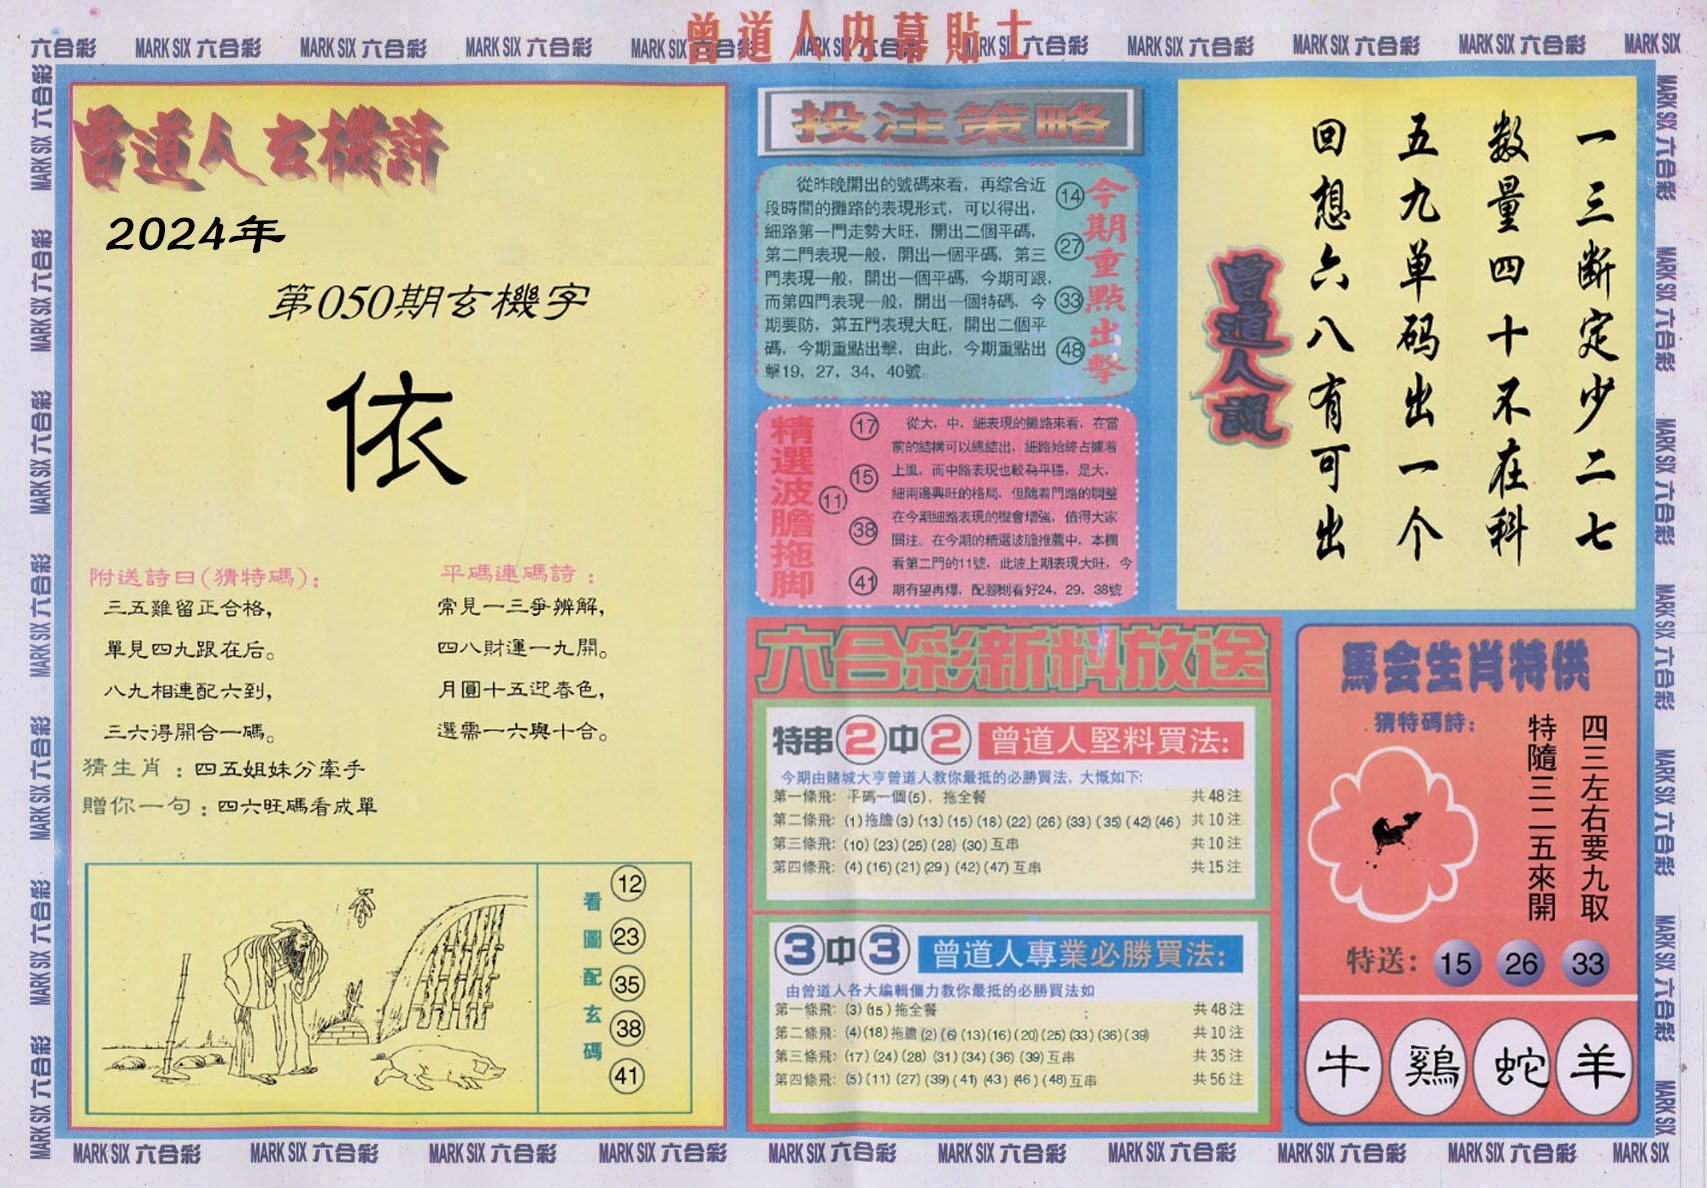 曾道人内幕貼士
六合彩 MARK SIX 六合彩 MARK SIX 六合彩 MARK SIX 六合彩 MARK SIX 六合彩 MARK SIX 六合彩 MARK SIX 六合彩 MARK SIX 六合彩 MARK SIX 六合彩 MARK SIX
曾道人玄機詩
2024年
第050期玄機字
依
附送詩曰(猜特碼):
三五難留正合格,
單見四九跟在后。
八九相連配六到,
三六得開合一碼。
平碼連碼詩:
常見一三爭辨解,
四八財運一九開。
月圓十五迎春色,
選需一六與十合。
猜生肖:四五姐妹分牽手
贈你一句:四六旺碼看成單
看圖配玄碼
12
23
35
38
41
投注策略
從昨晚開出的號碼來看，再綜合近
段時間的攤路的表現形式，可以得出，
細路第一門走勢大旺，開出二個平碼，
第二門表現一般，開出一個平碼，第三
門表現一般，開出一個平碼，今期可跟，
而第四門表現一般，開出一個特碼，今
期要防，第五門表現大旺，開出二個平
碼，今期重點出擊，由此，今期重點出
擊19，27，34，40號。
14
27
33
48
今期重點出擊
精選波膽拖脚
17
15
11
38
41
從大，中，細表現的攤路來看，在當
前的結構可以總結出，細路始終占據着
上風，而中路表現也較為平穩，是大，
細兩邊興旺的格局，但隨着門路的調整
在今期細路表現的機會增強，值得大家
關注。在今期的精選波膽推薦中，本欄
看第二門的11號，此波上期表現大旺，今
期有望再爆，配脚則看好24，29，38號
曾道人説
一三断定少二七
数量四十不在科
五九单码出一个
回想六八有可出
六合彩新料放送
特串2中2 曾道人堅料買法:
今期由賭城大亨曾道人教你最抵的必勝買法，大慨如下:
第一條飛: 平碼一個(5)，拖全餐 共48注
第二條飛: (1)拖膽(3)(13)(15)(18)(22)(26)(33)(35)(42)(46) 共10注
第三條飛: (10)(23)(25)(28)(30)互串 共10注
第四條飛: (4)(16)(21)(29)(42)(47)互串 共15注
3中3 曾道人專業必勝買法:
由曾道人各大編輯僵力教你最抵的必勝買法如
第一條飛: (3)(15)拖全餐 共48注
第二條飛: (4)(18)拖膽(2)(6)(13)(16)(20)(25)(33)(36)(39) 共10注
第三條飛: (17)(24)(28)(31)(34)(36)(39)互串 共35注
第四條飛: (5)(11)(27)(39)(41)(43)(46)(48)互串 共56注
馬会生肖特供
猜特碼詩:
四三左右要九取
特隨三二五來開
特送: 15 26 33
牛 鷄 蛇 羊
MARK SIX 六合彩 MARK SIX 六合彩 MARK SIX 六合彩 MARK SIX 六合彩 MARK SIX 六合彩 MARK SIX 六合彩 MARK SIX 六合彩 MARK SIX 六合彩 MARK SIX 六合彩 MARK SIX
MARK SIX 六合彩 MARK SIX 六合彩 MARK SIX 六合彩 MARK SIX 六合彩 MARK SIX 六合彩 MARK SIX 六合彩 MARK SIX 六合彩
MARK SIX 六合彩 MARK SIX 六合彩 MARK SIX 六合彩 MARK SIX 六合彩 MARK SIX 六合彩 MARK SIX 六合彩 MARK SIX